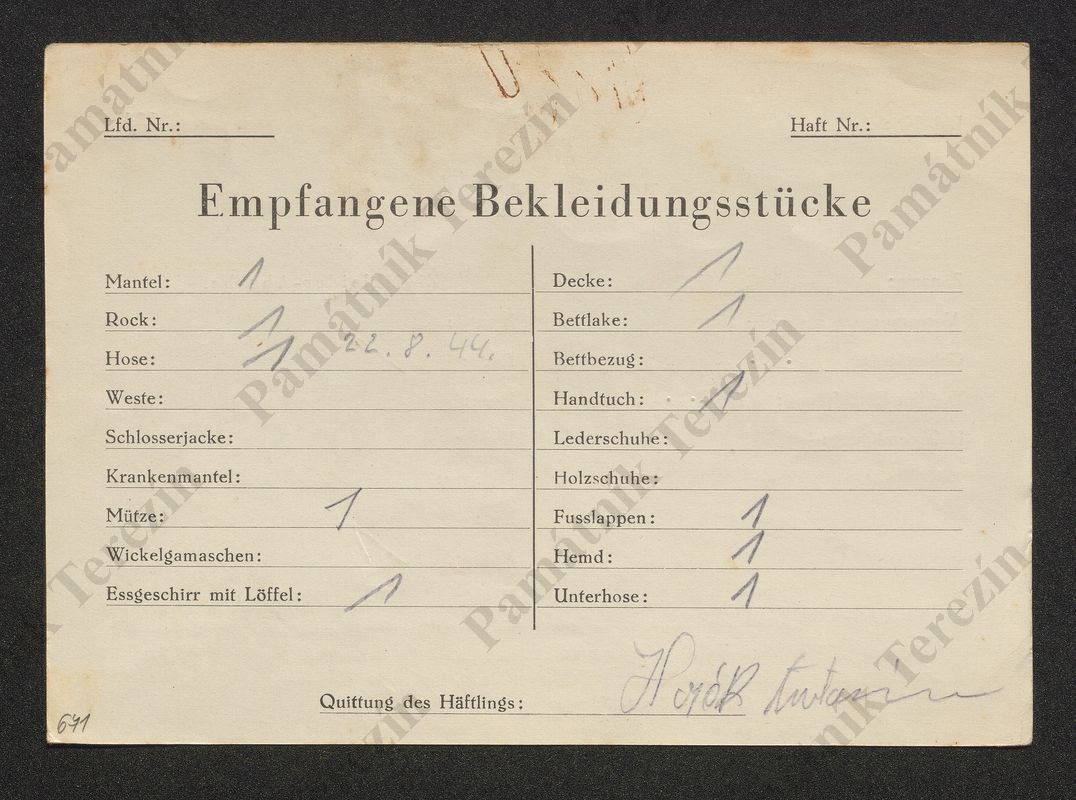 Lfd. Nr.:
Haft Nr.:
Empfangene Bekleidungsstücke
Mantel: 1
Rock: 1
Hose: 1 22.8.44.
Weste:
Schlosserjacke:
Krankenmantel:
Mütze: 1
Wickelgamaschen:
Essgeschirr mit Löffel: 1
Decke: 1
Bettlake: 1
Bettbezug:
Handtuch: 1
Lederschuhe:
Holzschuhe:
Fusslappen: 1
Hemd: 1
Unterhose: 1
Quittung des Häftlings: Horák
671
Památník Terezín